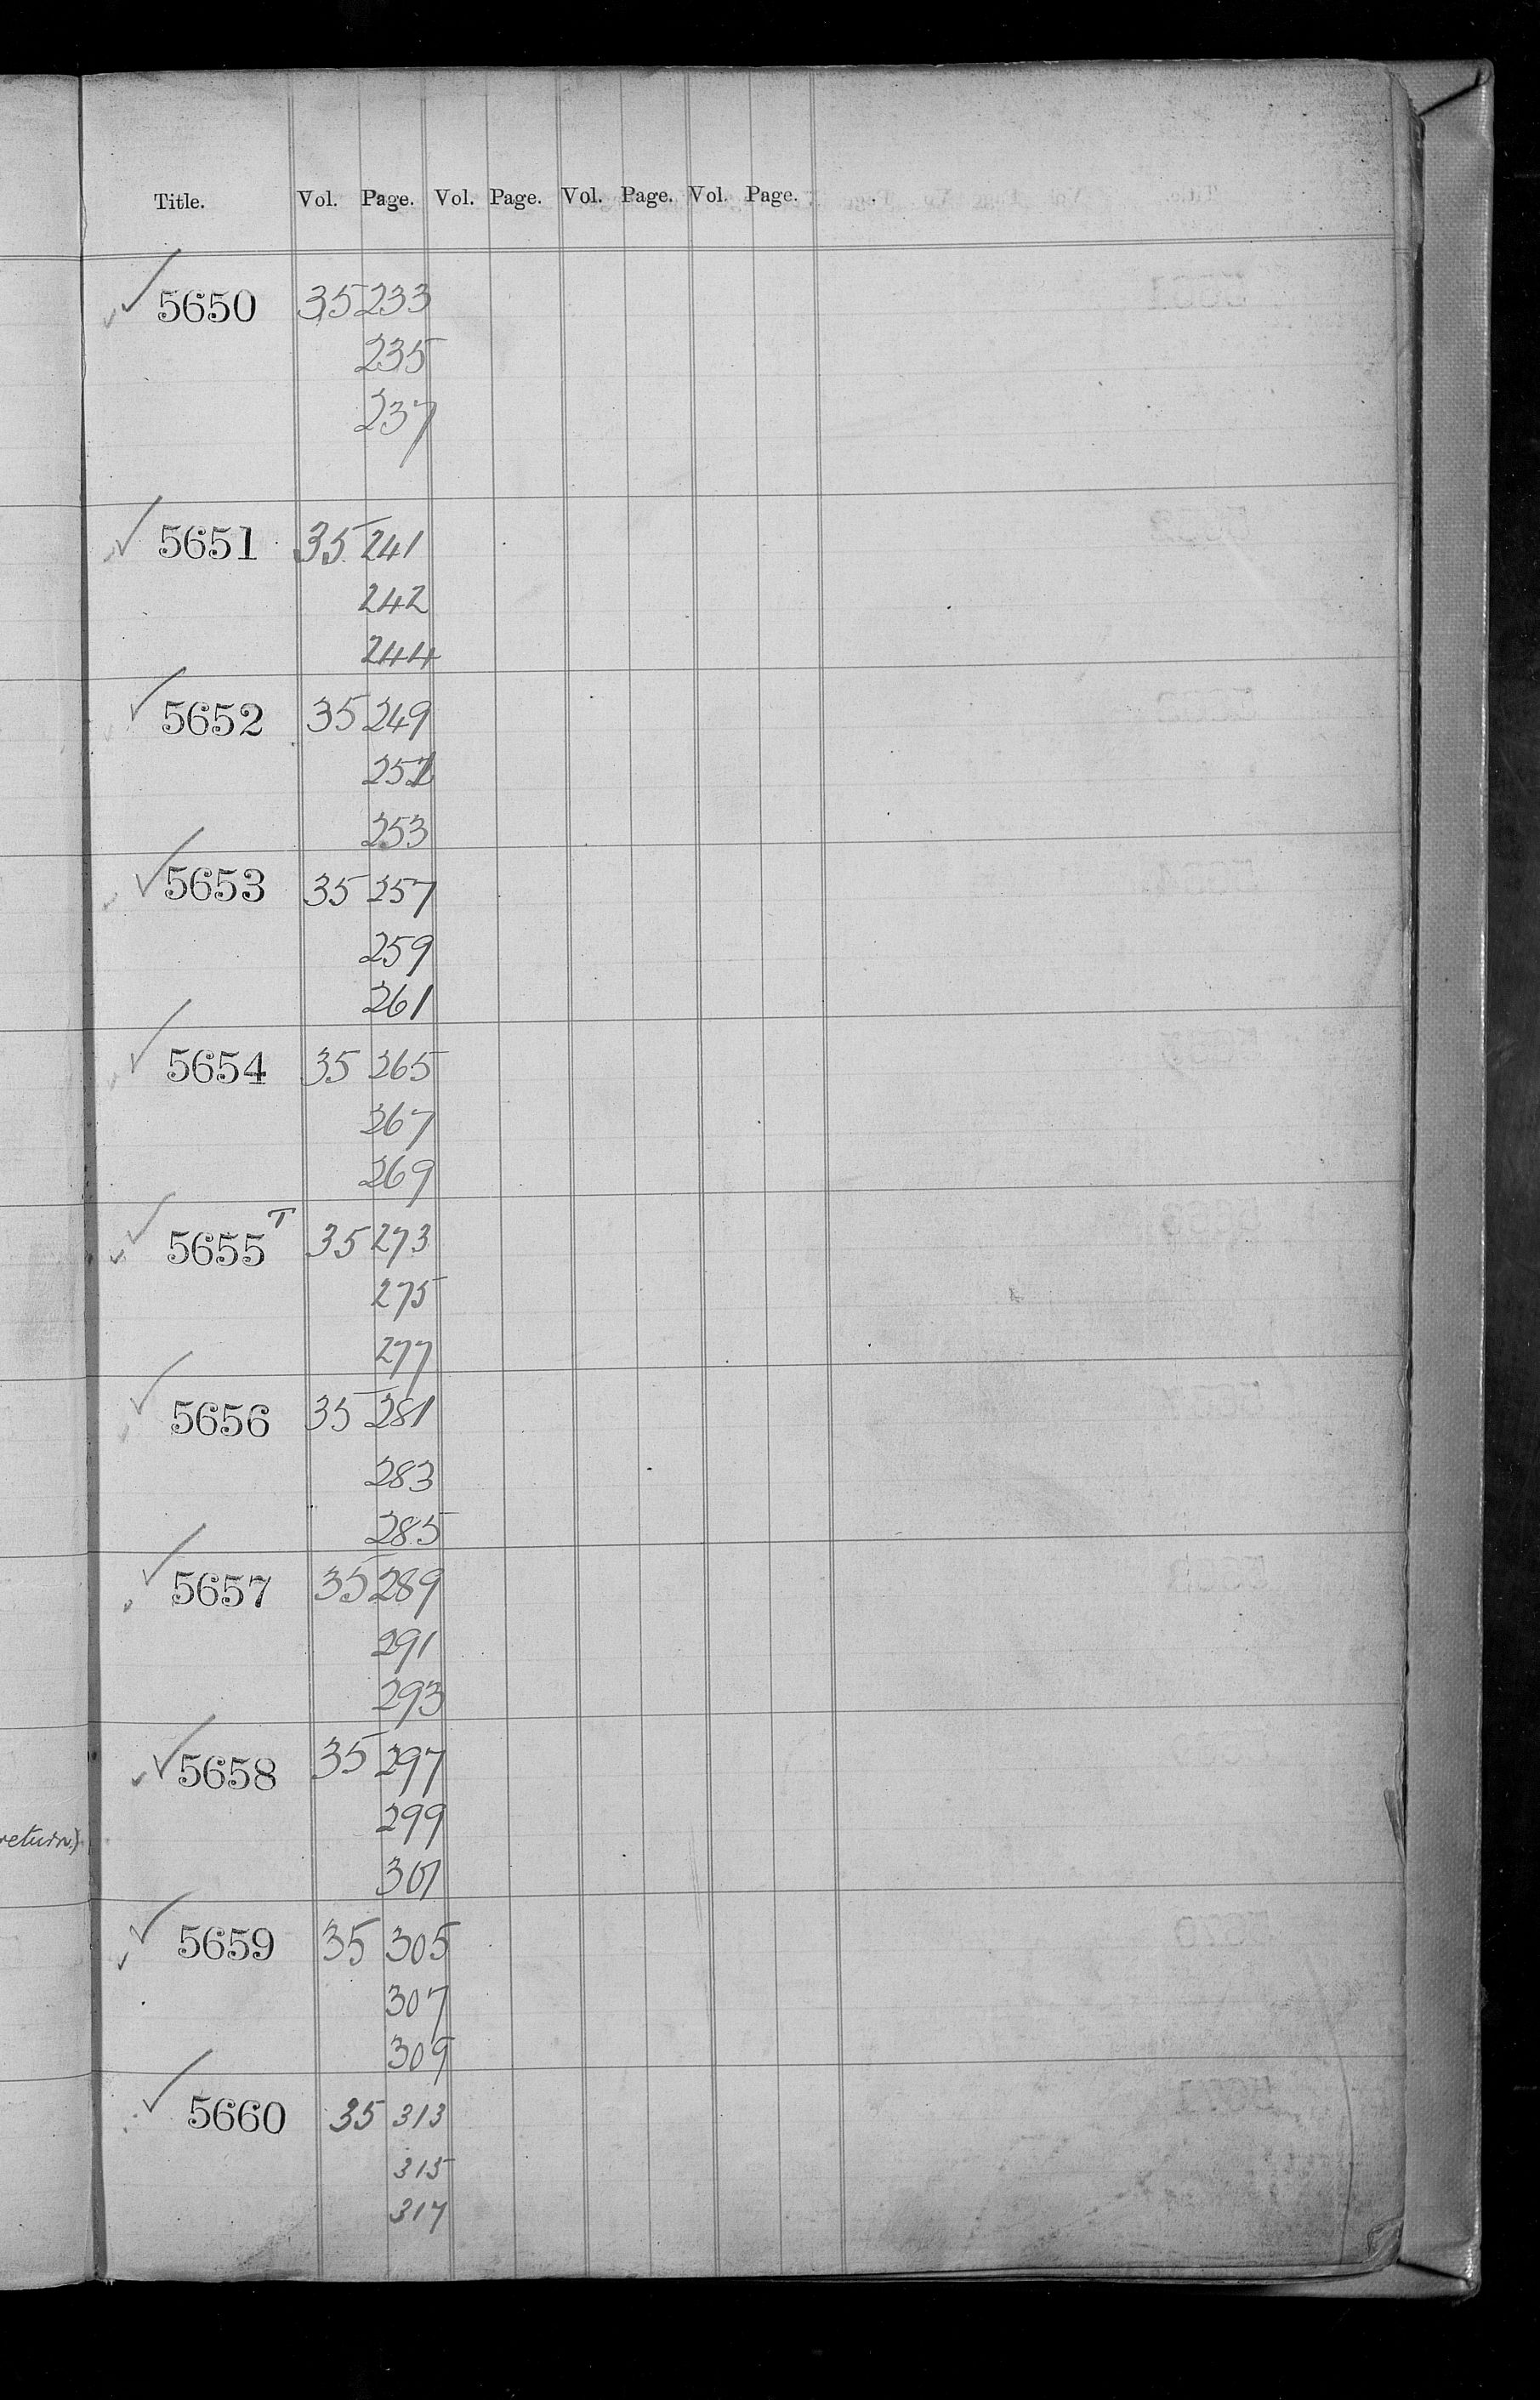 Title. Vol. Page. Vol. Page. Vol. Page. Vol. Page.
✓ 5650 35 233
235
237
✓ 5651 35 241
242
244
✓ 5652 35 249
253
✓ 5653 35 257
259
261
✓ 5654 35 265
267
269
✓ 5655 T 35 273
275
277
✓ 5656 35 281
283
285
✓ 5657 35 289
291
293
✓ 5658 35 297
299
return)
301
✓ 5659 35 305
307
309
✓ 5660 35 313
315
317